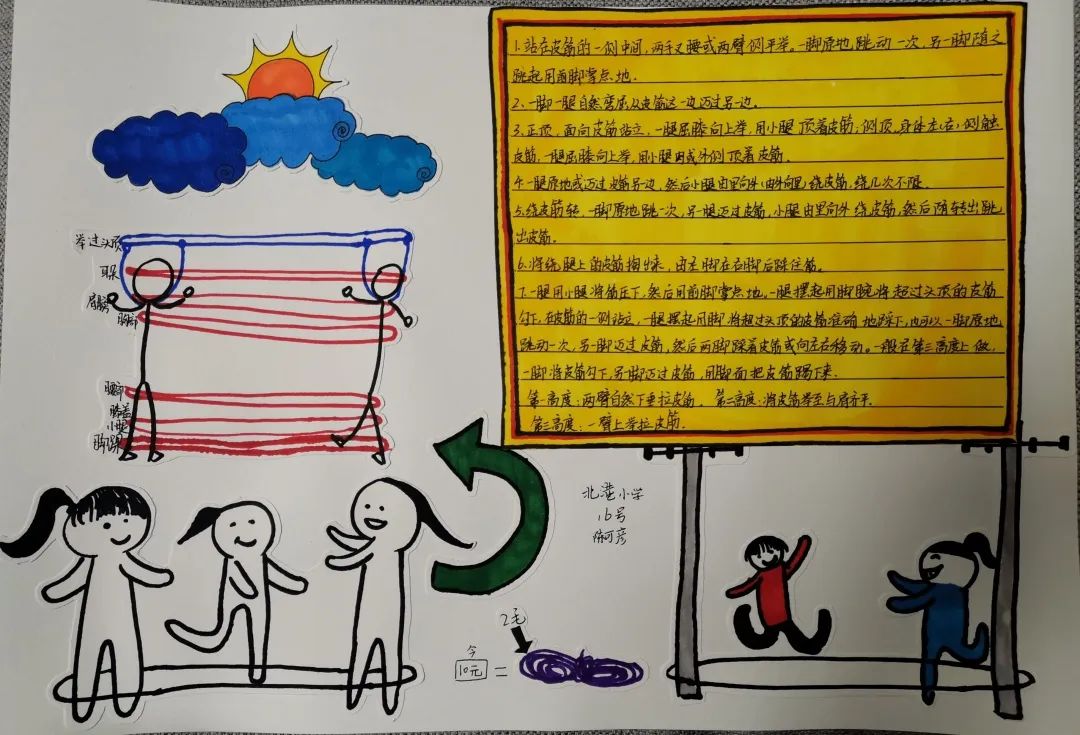 1.站在皮筋的一侧中间,两手叉腰或两臂侧平举。一脚原地跳动一次,另一脚随之
跳起用前脚掌点地.
2、一脚一腿自然弯屈从皮筋这一边迈过另一边。
3.正顶,面向皮筋站立,一腿屈膝向上举,用小腿顶着皮筋;侧顶,身体左(右)侧触
皮筋,一腿屈膝向上举,用小腿内或外侧顶着皮筋.
4.一腿原地或迈过皮筋另边,然后小腿由里向外(由外向里)绕皮筋,绕几次不限.
5.绕皮筋转,一脚原地跳一次,另一腿迈过皮筋,小腿由里向外绕皮筋,然后随转出跳
出皮筋.
6.将绕腿上的皮筋掏出来,由左脚在右脚后踩住筋.
7.一腿用小腿将筋压下,然后用前脚掌点地。一腿摆起用脚腕将超过头顶的皮筋
勾下,在皮筋的一侧站立,一腿摆起用脚将超过头顶的皮筋准确地踩下,也可以一脚原地
跳动一次,另一脚迈过皮筋,然后两脚踩着皮筋或向左右移动。一般在第三高度上做.
一脚将皮筋勾下,另一脚迈过皮筋,用脚面把皮筋踢下来.
第一高度:两臂自然下垂拉皮筋. 第二高度:将皮筋举至与肩齐平.
第三高度:一臂上举拉皮筋.
举过头顶
耳朵
肩膀
胸部
腰部
膝盖
小腿
脚踝
北滘小学
16号
可彦
2毛
今
10元 =